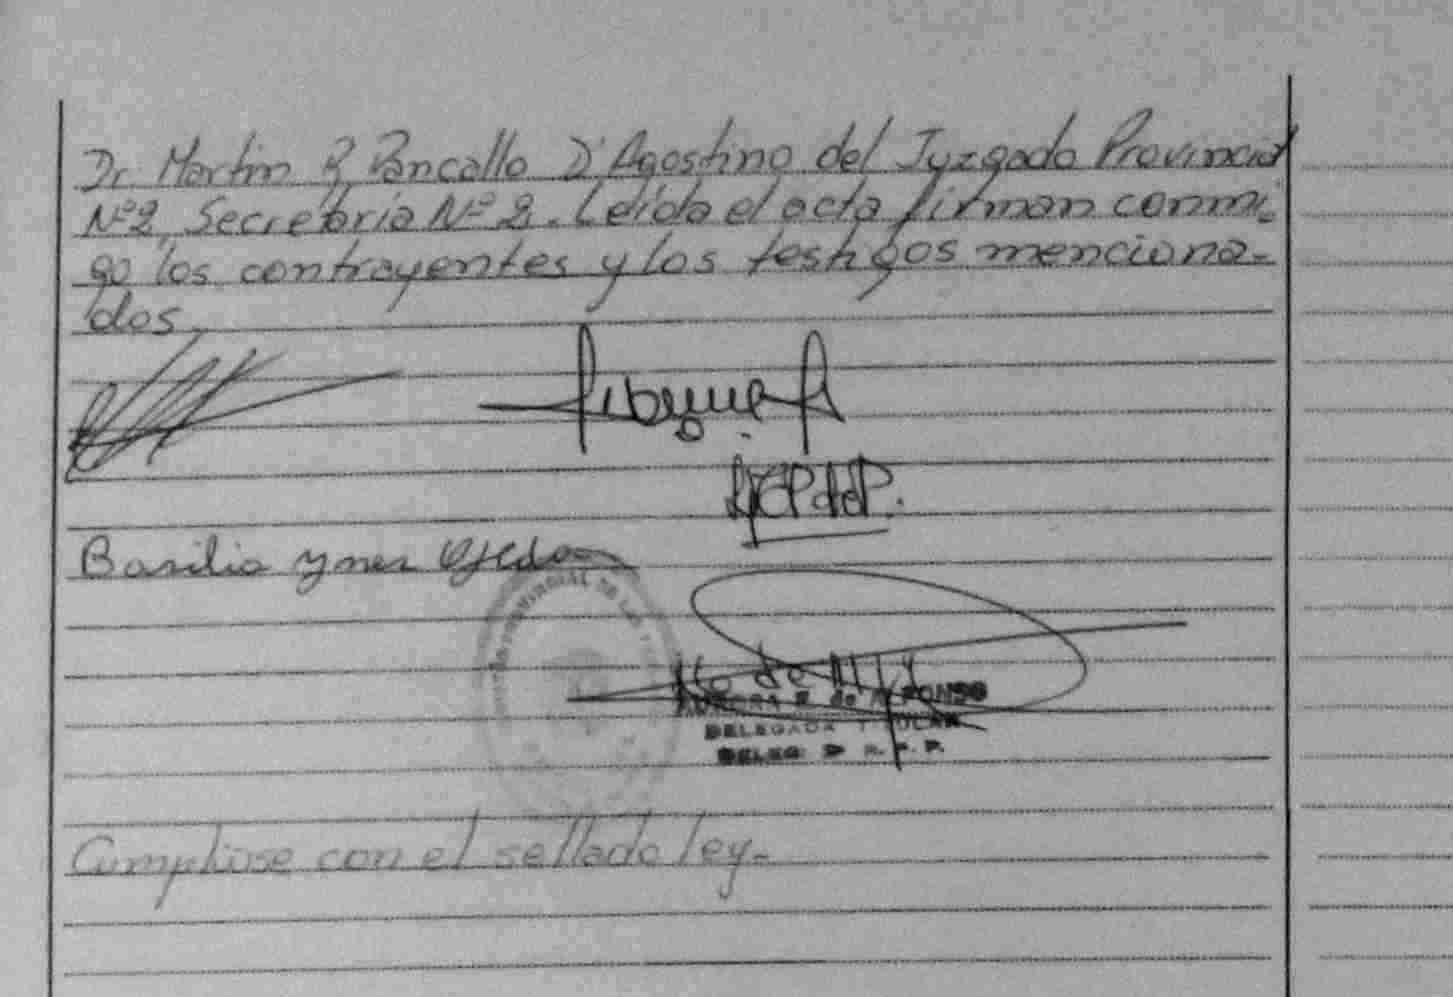 Dr. Martin R. Pancallo D'Agostino del Juzgado Provincial
Nº2, Secretaria Nº 2. Leída el acta firman conmi-
go los contrayentes y los testigos menciona-
dos.
Basilia Ynes Ojeda
AURORA E. de ALFONSO
DELEGADA TITULAR
DELEG. D R. P. P.
Cumpliose con el sellado ley.-